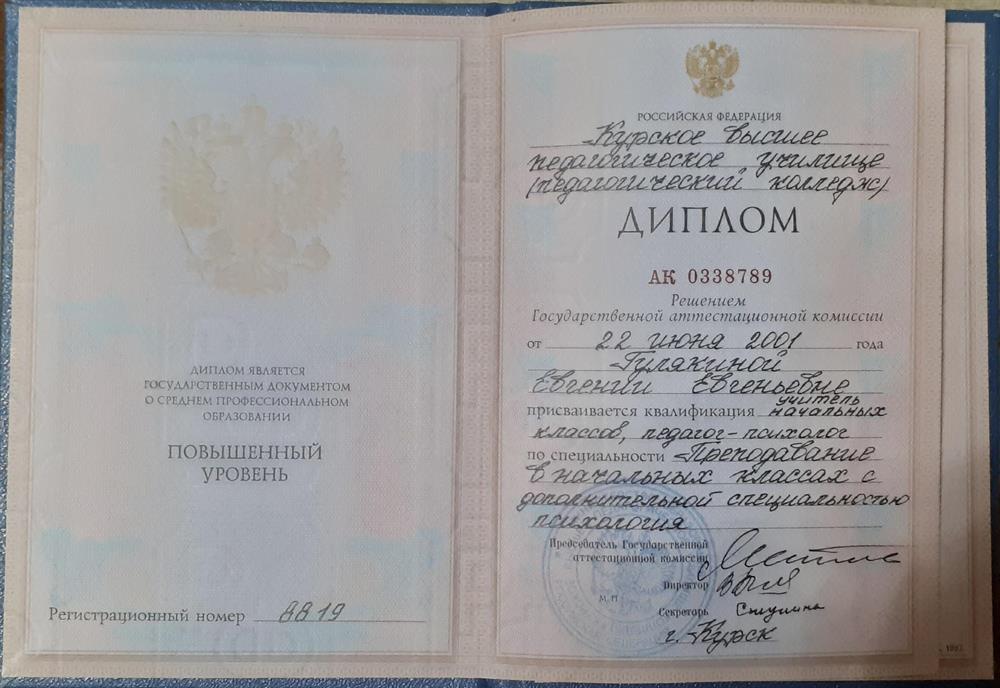 ДИПЛОМ ЯВЛЯЕТСЯ
ГОСУДАРСТВЕННЫМ ДОКУМЕНТОМ
О СРЕДНЕМ ПРОФЕССИОНАЛЬНОМ
ОБРАЗОВАНИИ
ПОВЫШЕННЫЙ
УРОВЕНЬ
Регистрационный номер 8819
РОССИЙСКАЯ ФЕДЕРАЦИЯ
Курское высшее
педагогическое училище
(педагогический колледж)
ДИПЛОМ
АК 0338789
Решением
Государственной аттестационной комиссии
от 22 июня 2001 года
Гулякиной
Евгении Евгеньевне
присваивается квалификация учитель
начальных
классов, педагог-психолог
по специальности Преподавание
в начальных классах с
дополнительной специальностью
психология
Председатель Государственной
аттестационной комиссии
Директор
М.П.
Секретарь
г. Курск